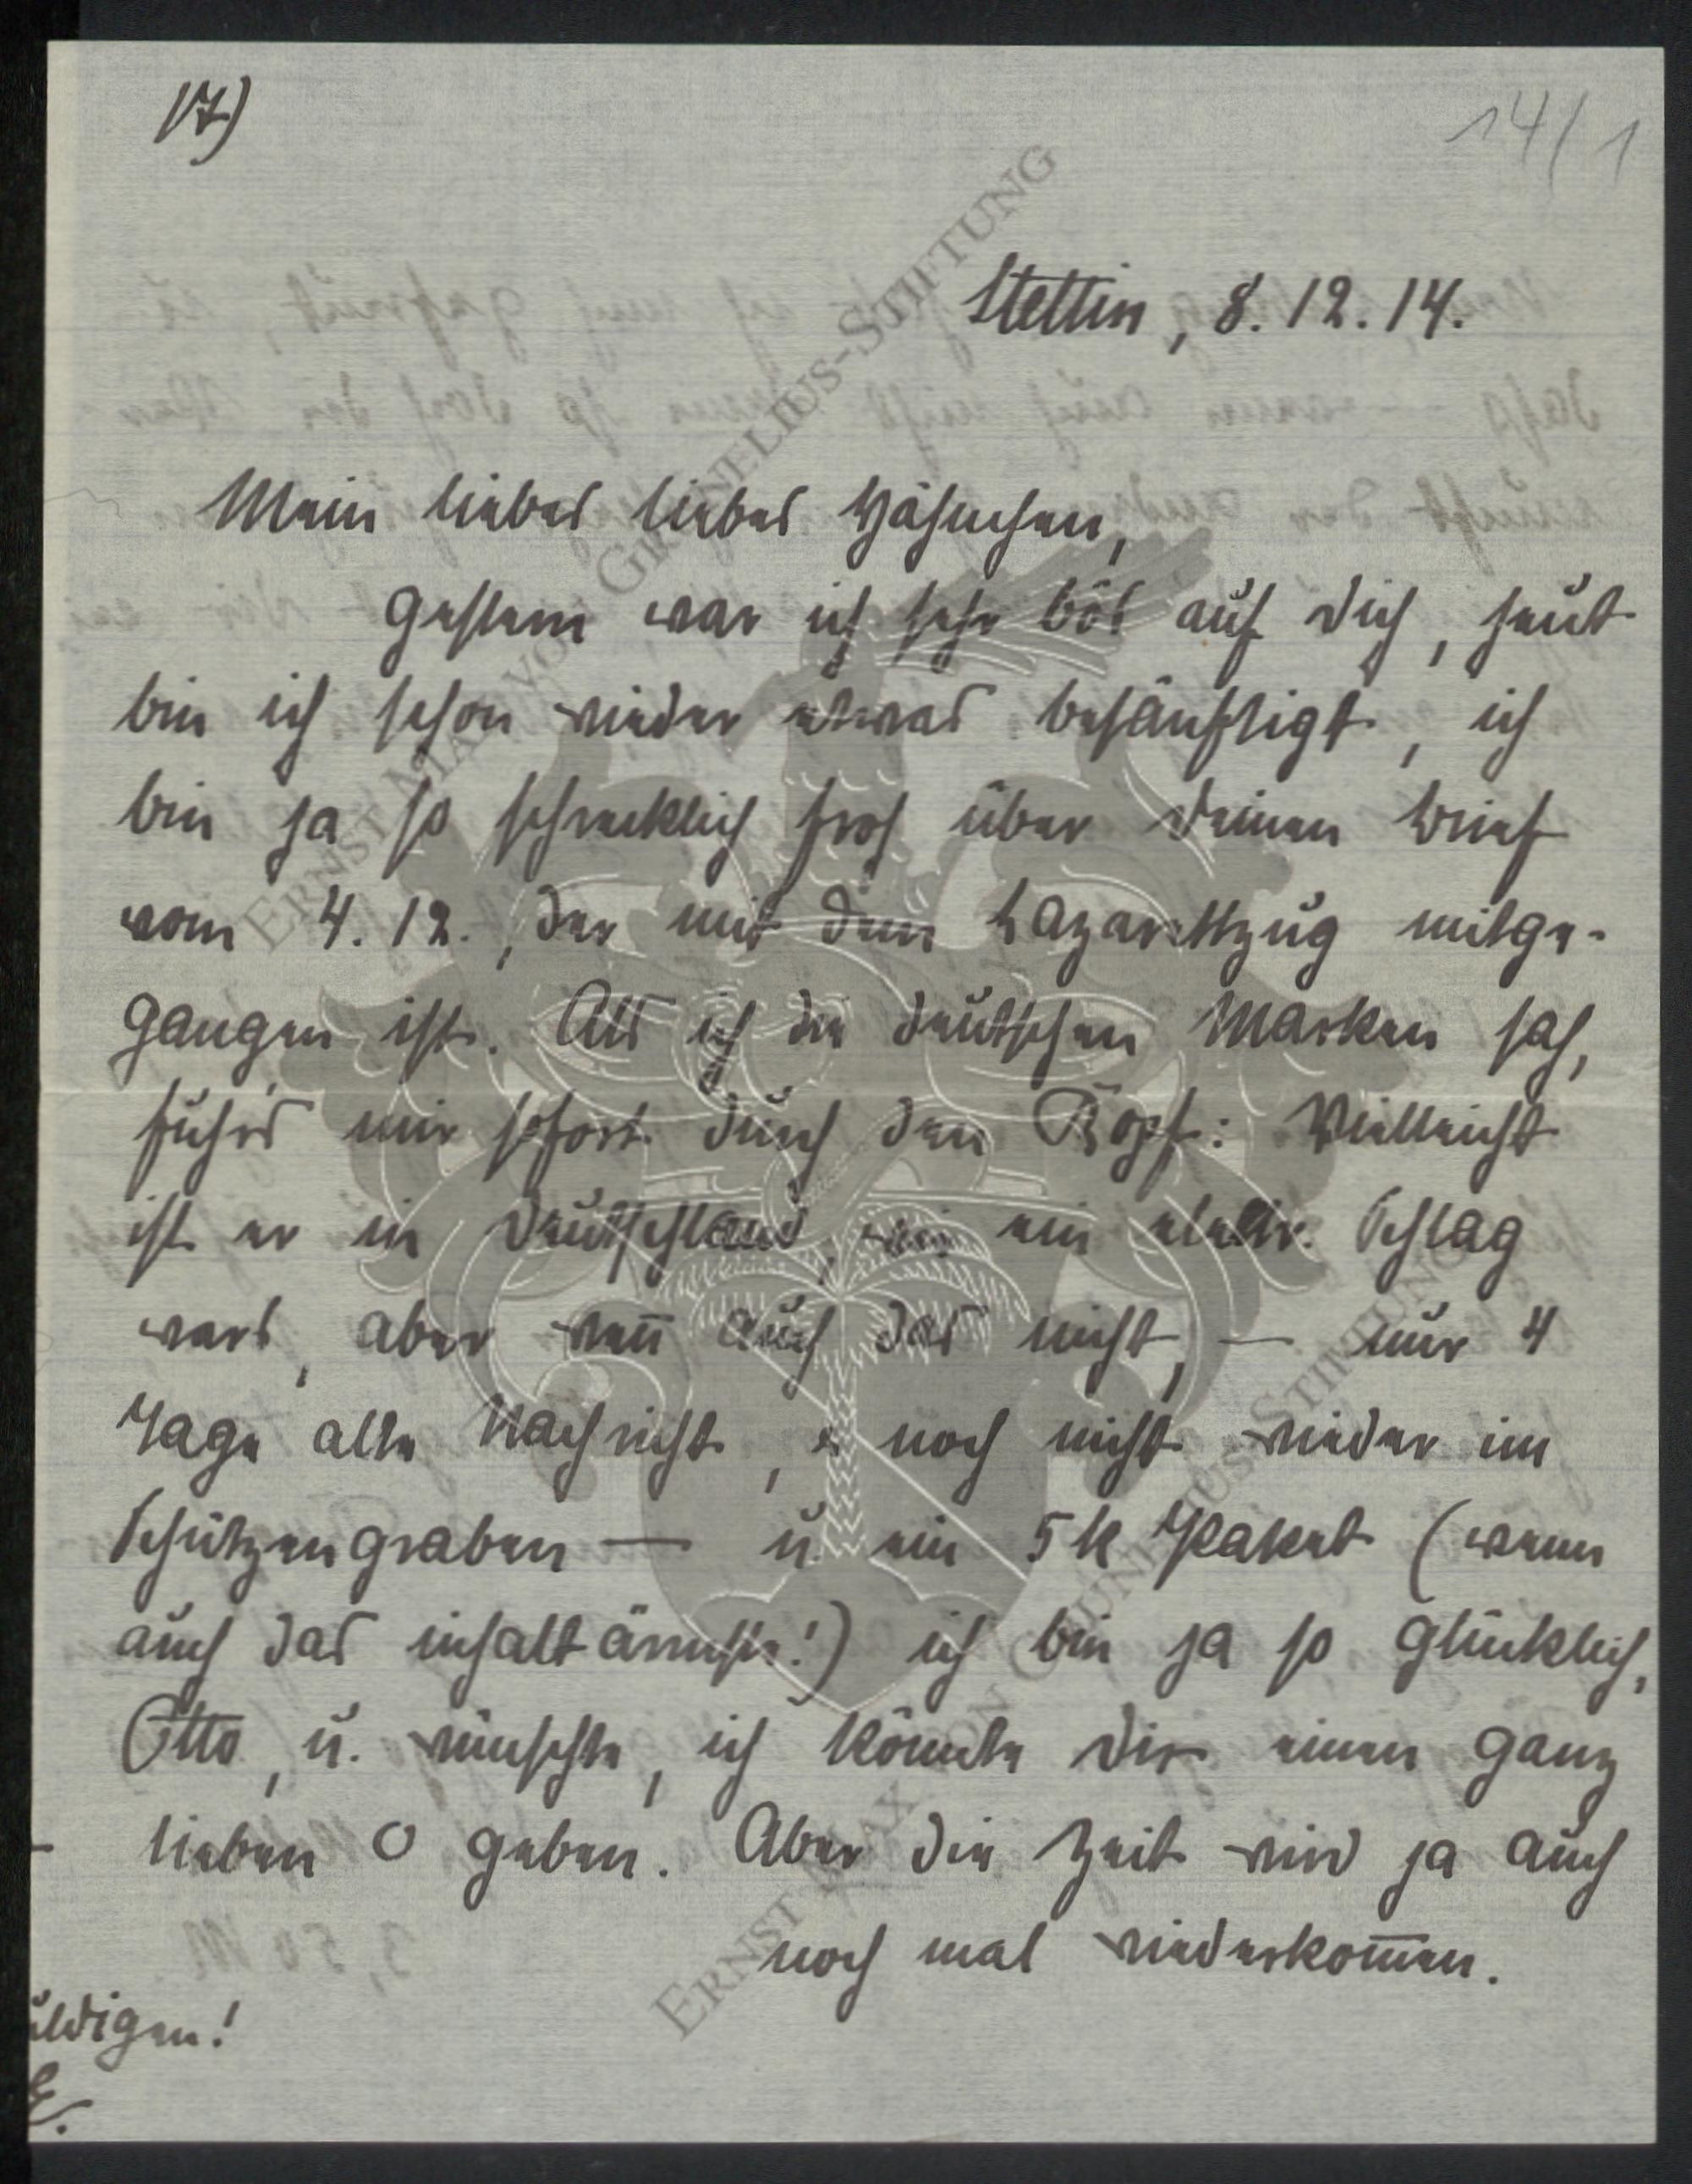 17)
14/1
Stettin, 8.12.14.
Mein liebes liebes Hähnchen,
gestern war ich sehr bös auf dich, heut
bin ich schon wieder etwas besänftigt, ich
bin ja so schrecklich froh über deinen Brief
vom 4.12., der mit dem Lazarettzug mitge-
gangen ist. Als ich die deutschen Marken sah,
fuhr's mir sofort durch den Kopf: Vielleicht
ist er in Deutschland, wie ein elektr. Schlag
wars, aber weñ auch das nicht, — nur 4
Tage alte Nachricht, noch nicht wieder im
Schützengraben — u. ein 5 K Paket (wenn
auch das inhaltärmste!) ich bin ja so glücklich,
Otto, u. wünschte, ich könnte dir einen ganz
lieben O geben. Aber die Zeit wird ja auch
noch mal wiederkom̄en.
uldigen!
E.
ERNST MAX VON GRUNELIUS-STIFTUNG
ERNST MAX VON GRUNELIUS-STIFTUNG